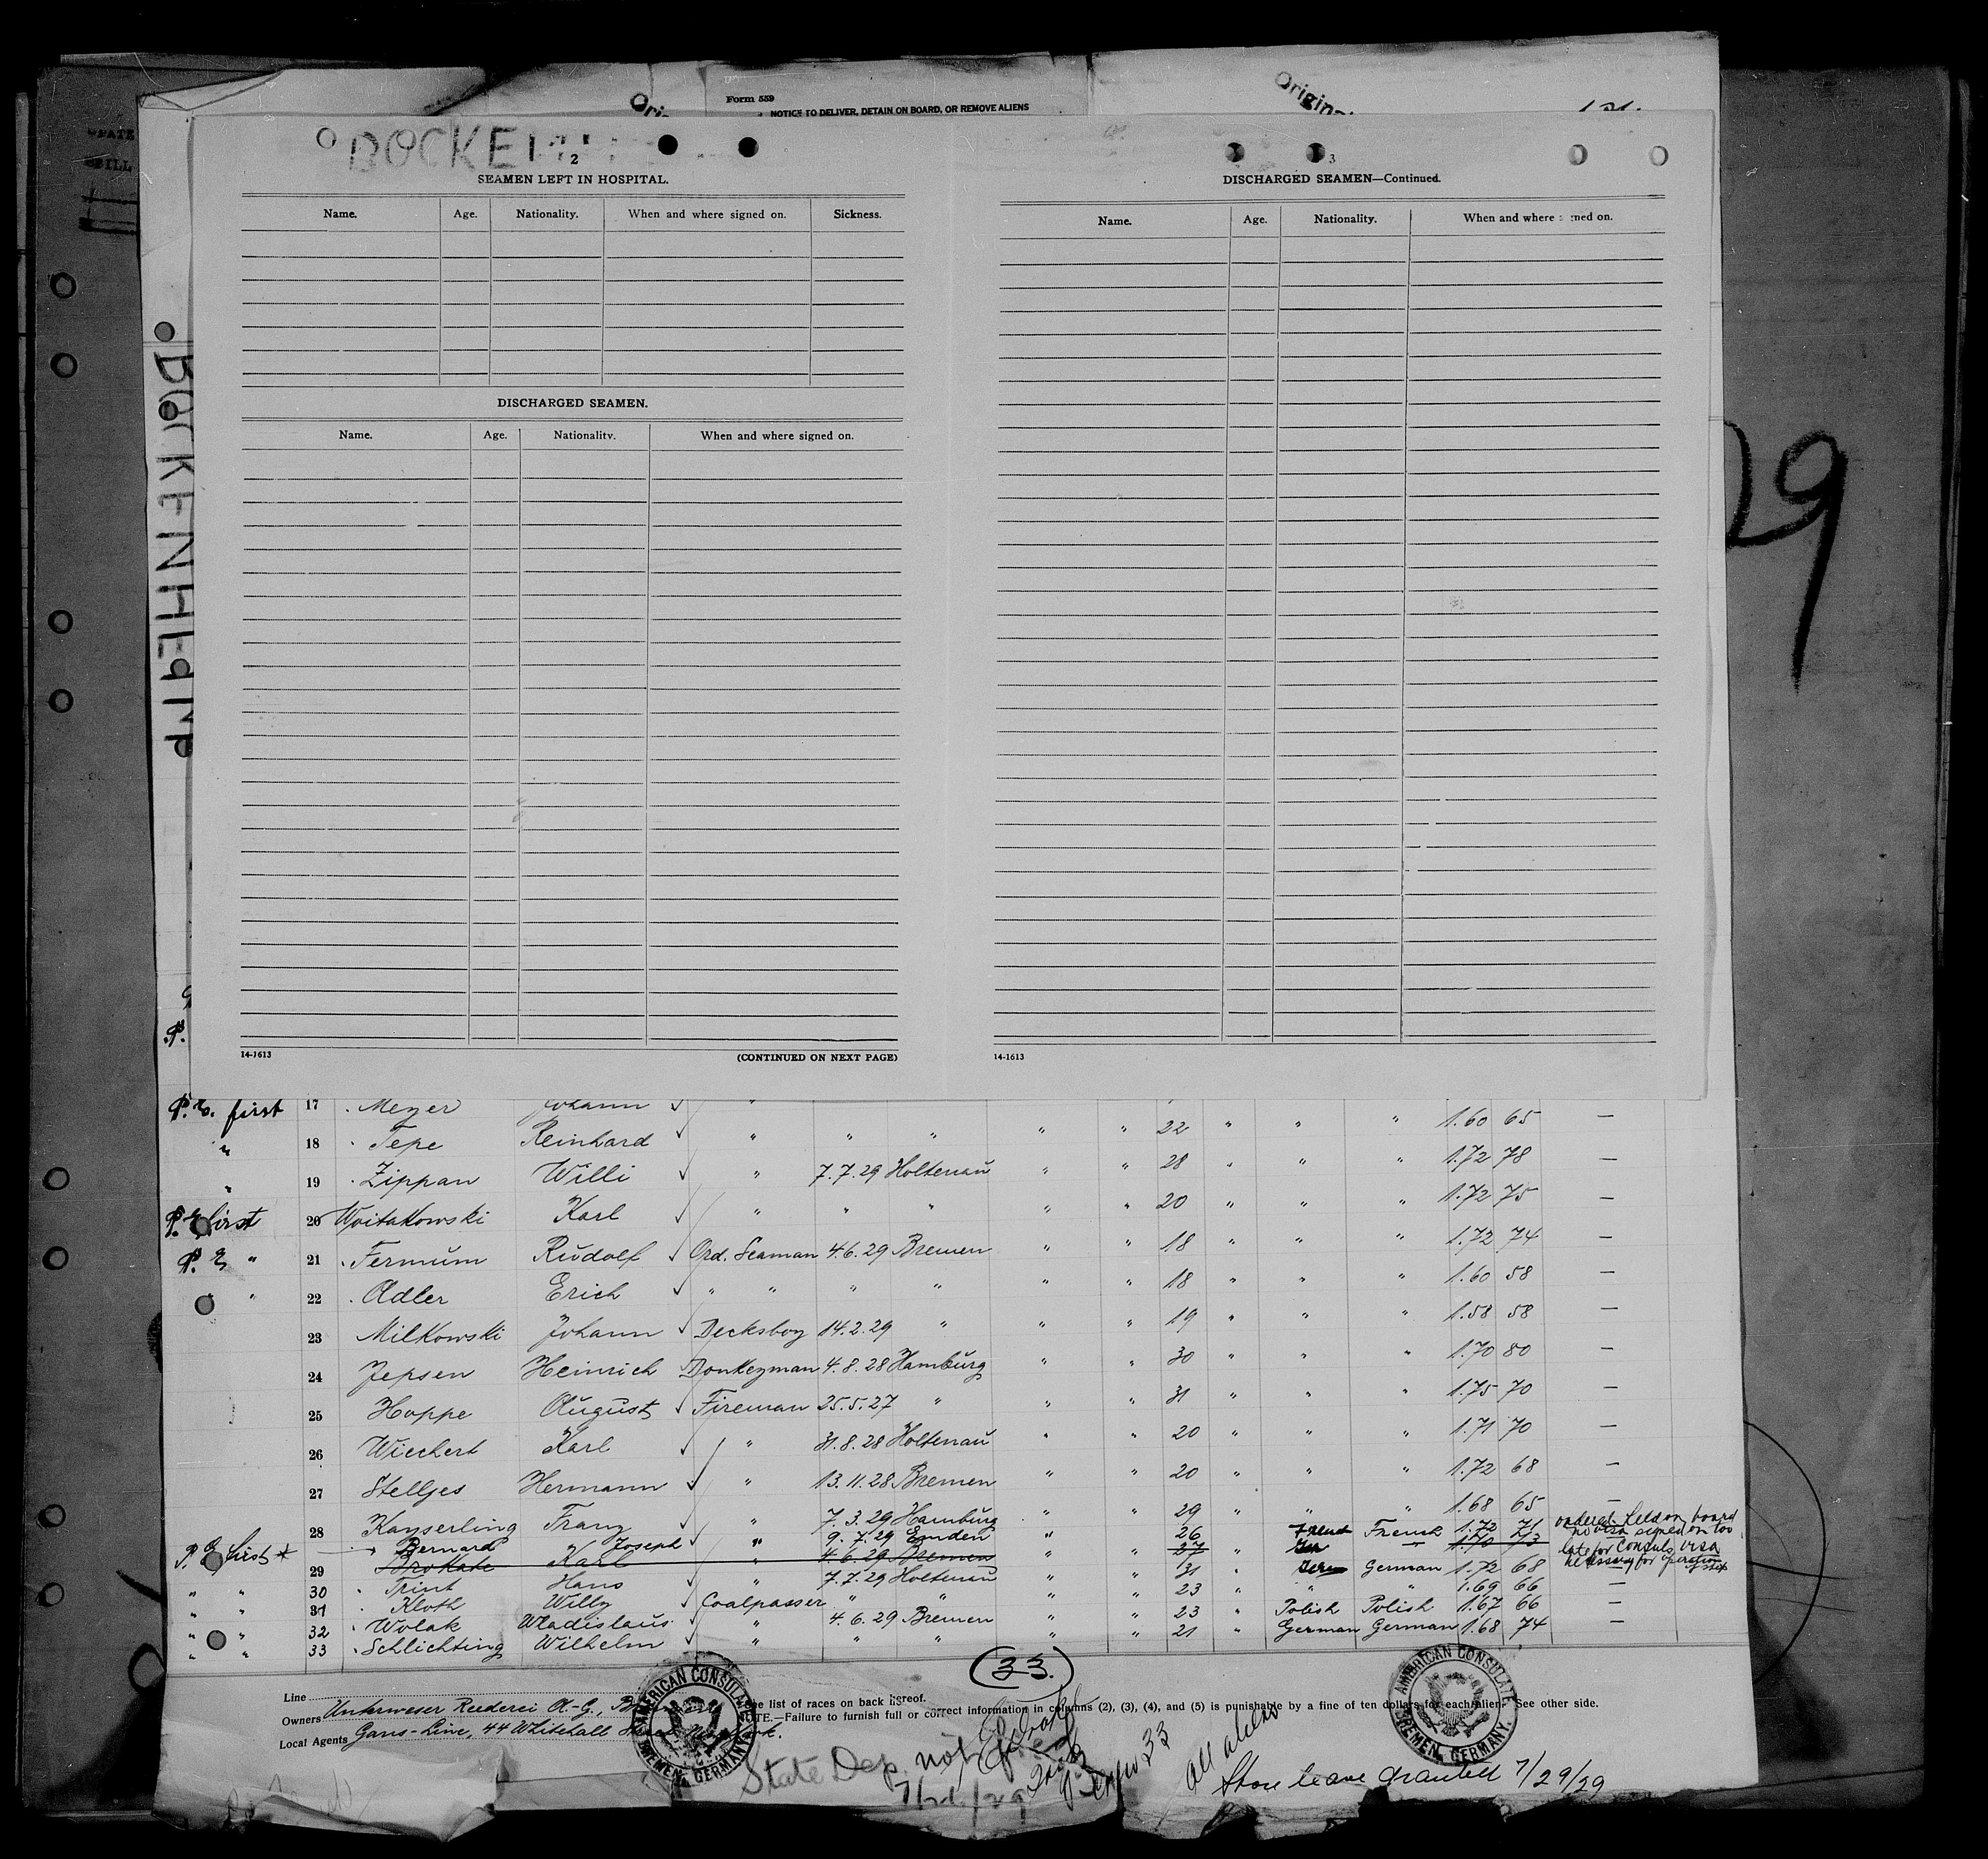 Form 559
NOTICE TO DELIVER, DETAIN ON BOARD, OR REMOVE ALIENS
BOCKENHEIM
29
2
SEAMEN LEFT IN HOSPITAL.
Name. Age. Nationality. When and where signed on. Sickness.
DISCHARGED SEAMEN.
Name. Age. Nationality. When and where signed on.
14-1613 (CONTINUED ON NEXT PAGE)
3
DISCHARGED SEAMEN—Continued.
Name. Age. Nationality. When and where signed on.
14-1613
first 17 Meyer Johann ✓ " 22 " " " 1.60 65 —
" 18 Tepe Reinhard ✓ " " " " " 28 " " " 1.72 78 —
" 19 Zippan Willi ✓ " 7.7.29 Holtenau " " 20 " " " 1.72 75 —
first 20 Woitakowski Karl ✓ " " " " " 18 " " " 1.72 74 —
" 21 Fermum Rudolf ✓ Ord. Seaman 4.6.29 Bremen " " 18 " " " 1.60 58 —
" " 22 Adler Erich ✓ " " " " " " 19 " " " 1.58 58 —
23 Milkowski Johann ✓ Decksboy 14.2.29 " " " 30 " " " 1.70 80 —
24 Jepsen Heinrich Donkeyman 4.8.28 Hamburg " " 31 " " " 1.75 70 —
25 Hoppe August ✓ Fireman 25.5.27 " " " 20 " " " 1.71 70 —
26 Wiechert Karl ✓ " 31.8.28 Holtenau " " 20 " " " 1.72 68 —
27 Stelljes Hermann ✓ " 13.11.28 Bremen " " 29 " " " 1.68 65 —
28 Kayserling Franz " 7.3.29 Hamburg
Bernard Joseph ✓ " 9.7.29 Emden " " 26 French 1.72 71 ordered held on board no visa signed on too late for Consul's visa
first * 29 Brokate Karl " 4.6.29 Bremen 27 1.70 73
" " 30 Trint Hans ✓ " 7.7.29 Holtenau " " 31 " German 1.72 68
" " 31 Kloth Willy ✓ Coalpasser " " " " 23 " " " 1.69 66 —
" " 32 Wolak Wladislaus " 4.6.29 Bremen " " 23 " Polish Polish 1.67 66 —
" " 33 Schlichting Wilhelm ✓ " " " " " 21 " German German 1.68 74 —
(33.)
Line
Owners Unterweser Reederei A.-G.,
Local Agents Gans-Line, 44 Whitehall Street, New York.
See list of races on back hereof.
NOTE.—Failure to furnish full or correct information in columns (2), (3), (4), and (5) is punishable by a fine of ten dollars for each alien. See other side.
AMERICAN CONSULATE
BREMEN, GERMANY.
AMERICAN CONSULATE
BREMEN, GERMANY.
State Dep. not
33
all aliens
Shore leave granted 7/29/29